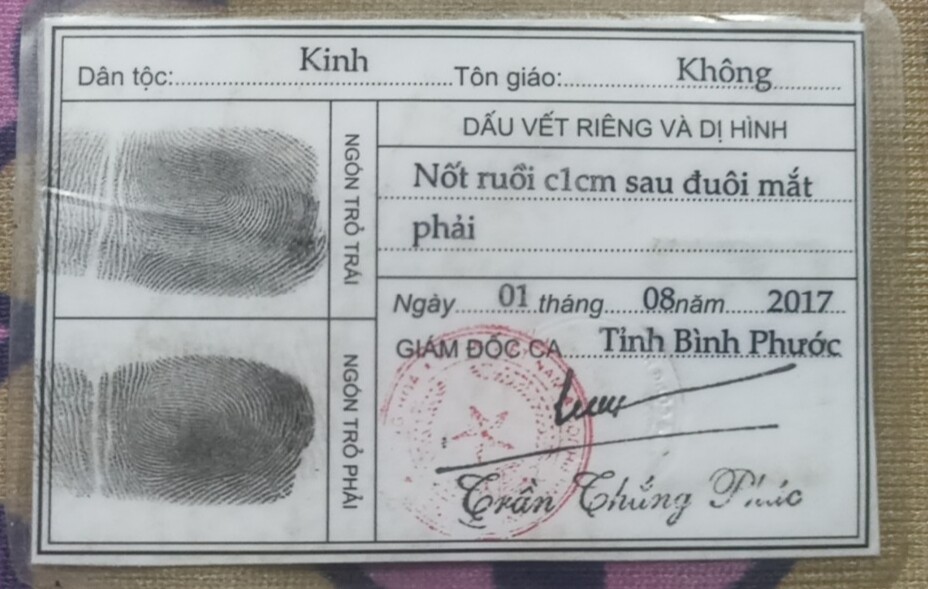 Dân tộc: Kinh Tôn giáo: Không
NGÓN TRỎ TRÁI
DẤU VẾT RIÊNG VÀ DỊ HÌNH
Nốt ruồi c1cm sau đuôi mắt
phải
NGÓN TRỎ PHẢI
Ngày 01 tháng 08 năm 2017
GIÁM ĐỐC CA Tỉnh Bình Phước
Trần Thắng Phúc